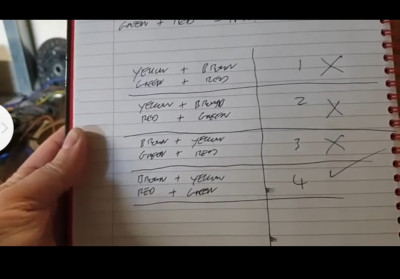 GREEN + RED
YELLOW + BROWN 1 X
GREEN + RED
YELLOW + BROWN 2 X
RED + GREEN
BROWN + YELLOW 3 X
GREEN + RED
BROWN + YELLOW 4 ✓
RED + GREEN